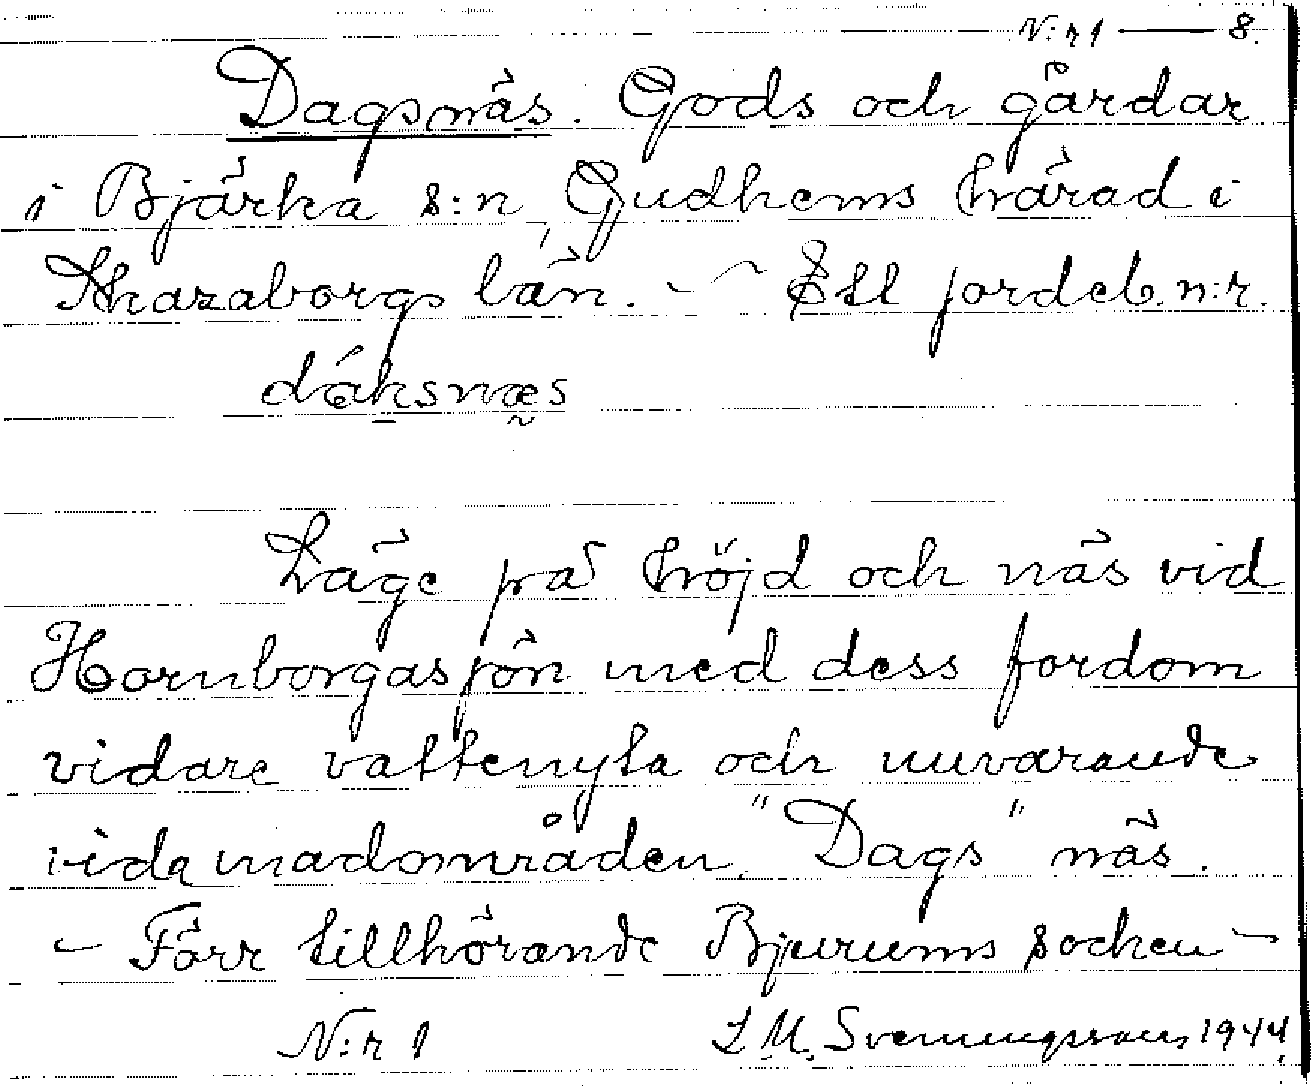 N:r 1 — 8.
Dagsnäs. Gods och gårdar
i Bjärka s:n, Gudhems härad i
Skaraborgs län. — Ett jordeb. n:r.
dáksnæs
Läge på höjd och näs vid
Hornborgasjön med dess fordom
vidare vattenyta och nuvarande
vida madområden. "Dags" näs.
— Förr tillhörande Bjurums socken —
N:r 1 L.M. Svenungsson 1944